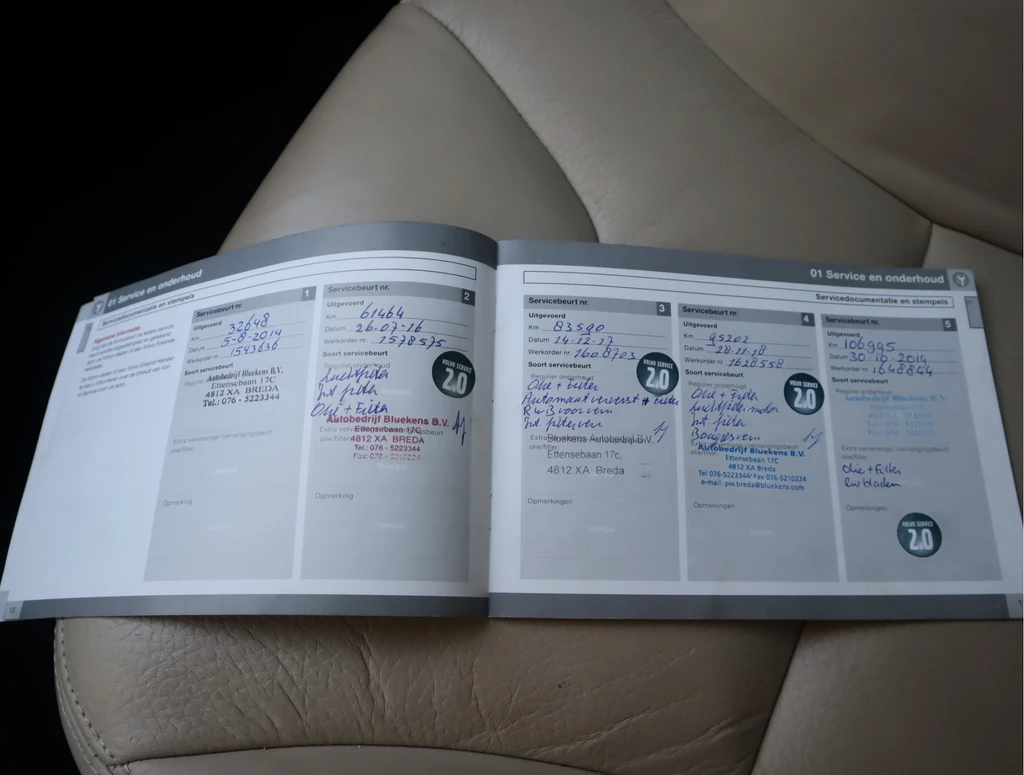 01 Service en onderhoud
Servicedocumentatie en stempels
Algemene informatie
Servicebeurt nr. 1
Uitgevoerd
Km 32648
Datum 5-8-2014
Werkorder nr. 1543636
Soort servicebeurt
Autobedrijf Bluekens B.V.
Ettensebaan 17C
4812 XA BREDA
Tel.: 076 - 5223344
Extra verversings-/vervangingsbeurt
olie/filter
Opmerking
Servicebeurt nr. 2
Uitgevoerd
Km 61464
Datum 26-07-16
Werkorder nr. 1578575
Soort servicebeurt
VOLVO SERVICE
2.0
Luchtfilter
Int filter
Olie + Filter
Autobedrijf Bluekens B.V.
Ettensebaan 17C
4812 XA BREDA
Tel: 076 - 5223344
Fax: 076 - 5210224
Opmerking
12
01 Service en onderhoud
Servicedocumentatie en stempels
Servicebeurt nr. 3
Uitgevoerd
Km 83590
Datum 14-12-17
Werkorder nr. 1608703
Soort servicebeurt
Regulier onderhoud
VOLVO SERVICE
2.0
Olie + Filter
Automaat ververst + Filter
Bluekens Autobedrijf B.V.
Ettensebaan 17c,
4812 XA Breda
Opmerkingen
Servicebeurt nr. 4
Uitgevoerd
Km 95202
Datum 28-11-18
Werkorder nr. 1628558
Soort servicebeurt
Regulier onderhoud
VOLVO SERVICE
2.0
Olie + Filter
Luchtfilter motor
Int filter
Autobedrijf Bluekens B.V.
Ettensebaan 17C
4812 XA Breda
Tel 076-5223344/ Fax 076-5210224
e-mail: pw.breda@bluekens.com
Opmerkingen
Servicebeurt nr. 5
Uitgevoerd
Km 106995
Datum 30-10-2019
Werkorder nr. 1648844
Soort servicebeurt
Regulier onderhoud
Autobedrijf Bluekens B.V.
Extra verversings-/vervangingsbeurt
olie/filter
Olie + Filter
Rw bladen
Opmerkingen
VOLVO SERVICE
2.0